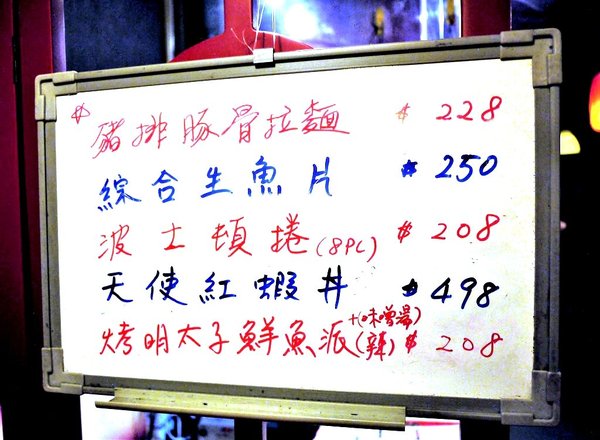 豬排豚骨拉麵 $ 228
綜合生魚片 $ 250
波士頓捲(8PC) $ 208
天使紅蝦丼 $ 498
烤明太子鮮魚派(辣)+(味噌湯) $ 208